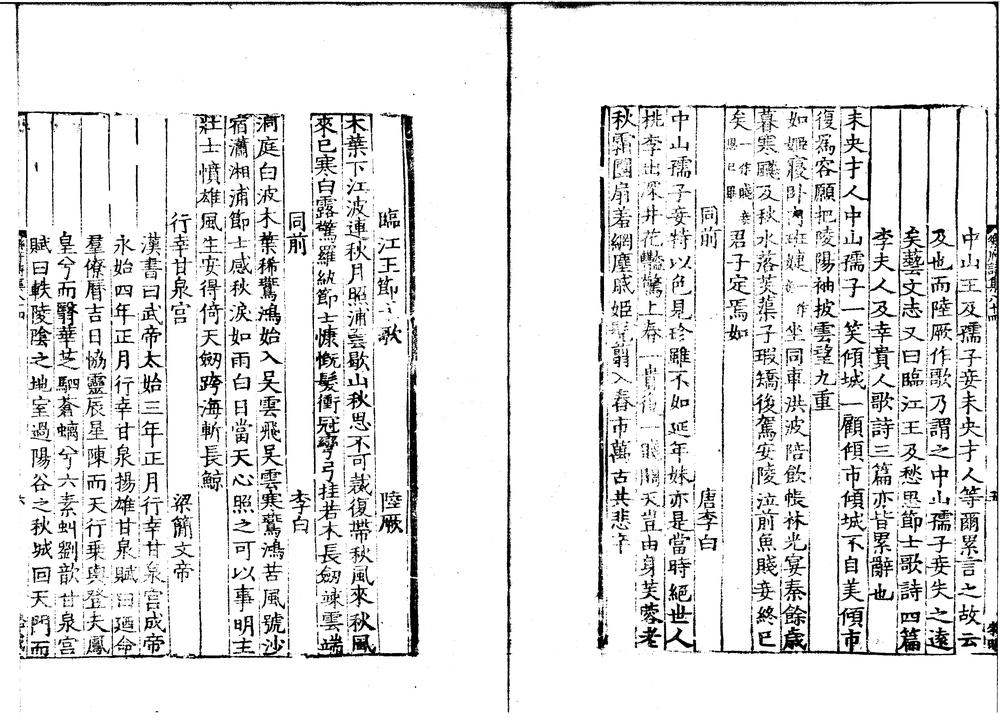 中山王及孺子妾未央才人等爾累言之故云
及也而陸厥作歌乃謂之中山孺子妾失之遠
矣藝文志又曰臨江王及愁思節士歌詩四篇
李夫人及幸貴人歌詩三篇亦皆累辭也
未央才人中山孺子一笑傾城一顧傾市傾城不自美傾市
復爲容願把陵陽袖披雲望九重
如姬寢卧內班婕一作坐同車洪波陪飲帳林光宴秦餘歲
暮寒飈及秋水落芙蕖子瑕矯後駕安陵泣前魚賤妾終已
矣一作賤妾恩已畢君子定焉如
同前 唐李白
中山孺子妾特以色見珍雖不如延年妹亦是當時絕世人
桃李出深井花艷驚上春一貴復一賤關天豈由身芙蓉老
秋霜團扇羞網塵戚姬髡翦入春市萬古共悲辛
臨江王節士歌 陸厥
木葉下江波連秋月照浦雲歇山秋思不可裁復帶秋風來秋風
來已寒白露驚羅紈節士慷慨髮衝冠彎弓挂若木長劒竦雲端
同前 李白
洞庭白波木葉稀驚鴻始入吳雲飛吳雲寒驚鴻苦風號沙
宿瀟湘浦節士感秋淚如雨白日當天心照之可以事明主
壯士憤雄風生安得倚天劒跨海斬長鯨
行幸甘泉宮 梁簡文帝
漢書曰武帝太始三年正月行幸甘泉宮成帝
永始四年正月行幸甘泉揚雄甘泉賦曰廼命
羣僚曆吉日恊靈辰星陳而天行乗輿登夫鳳
皇兮而翳華芝駟蒼螭兮六素虯劉歆甘泉宮
賦曰軼陵陰之地室過陽谷之秋城回天門而